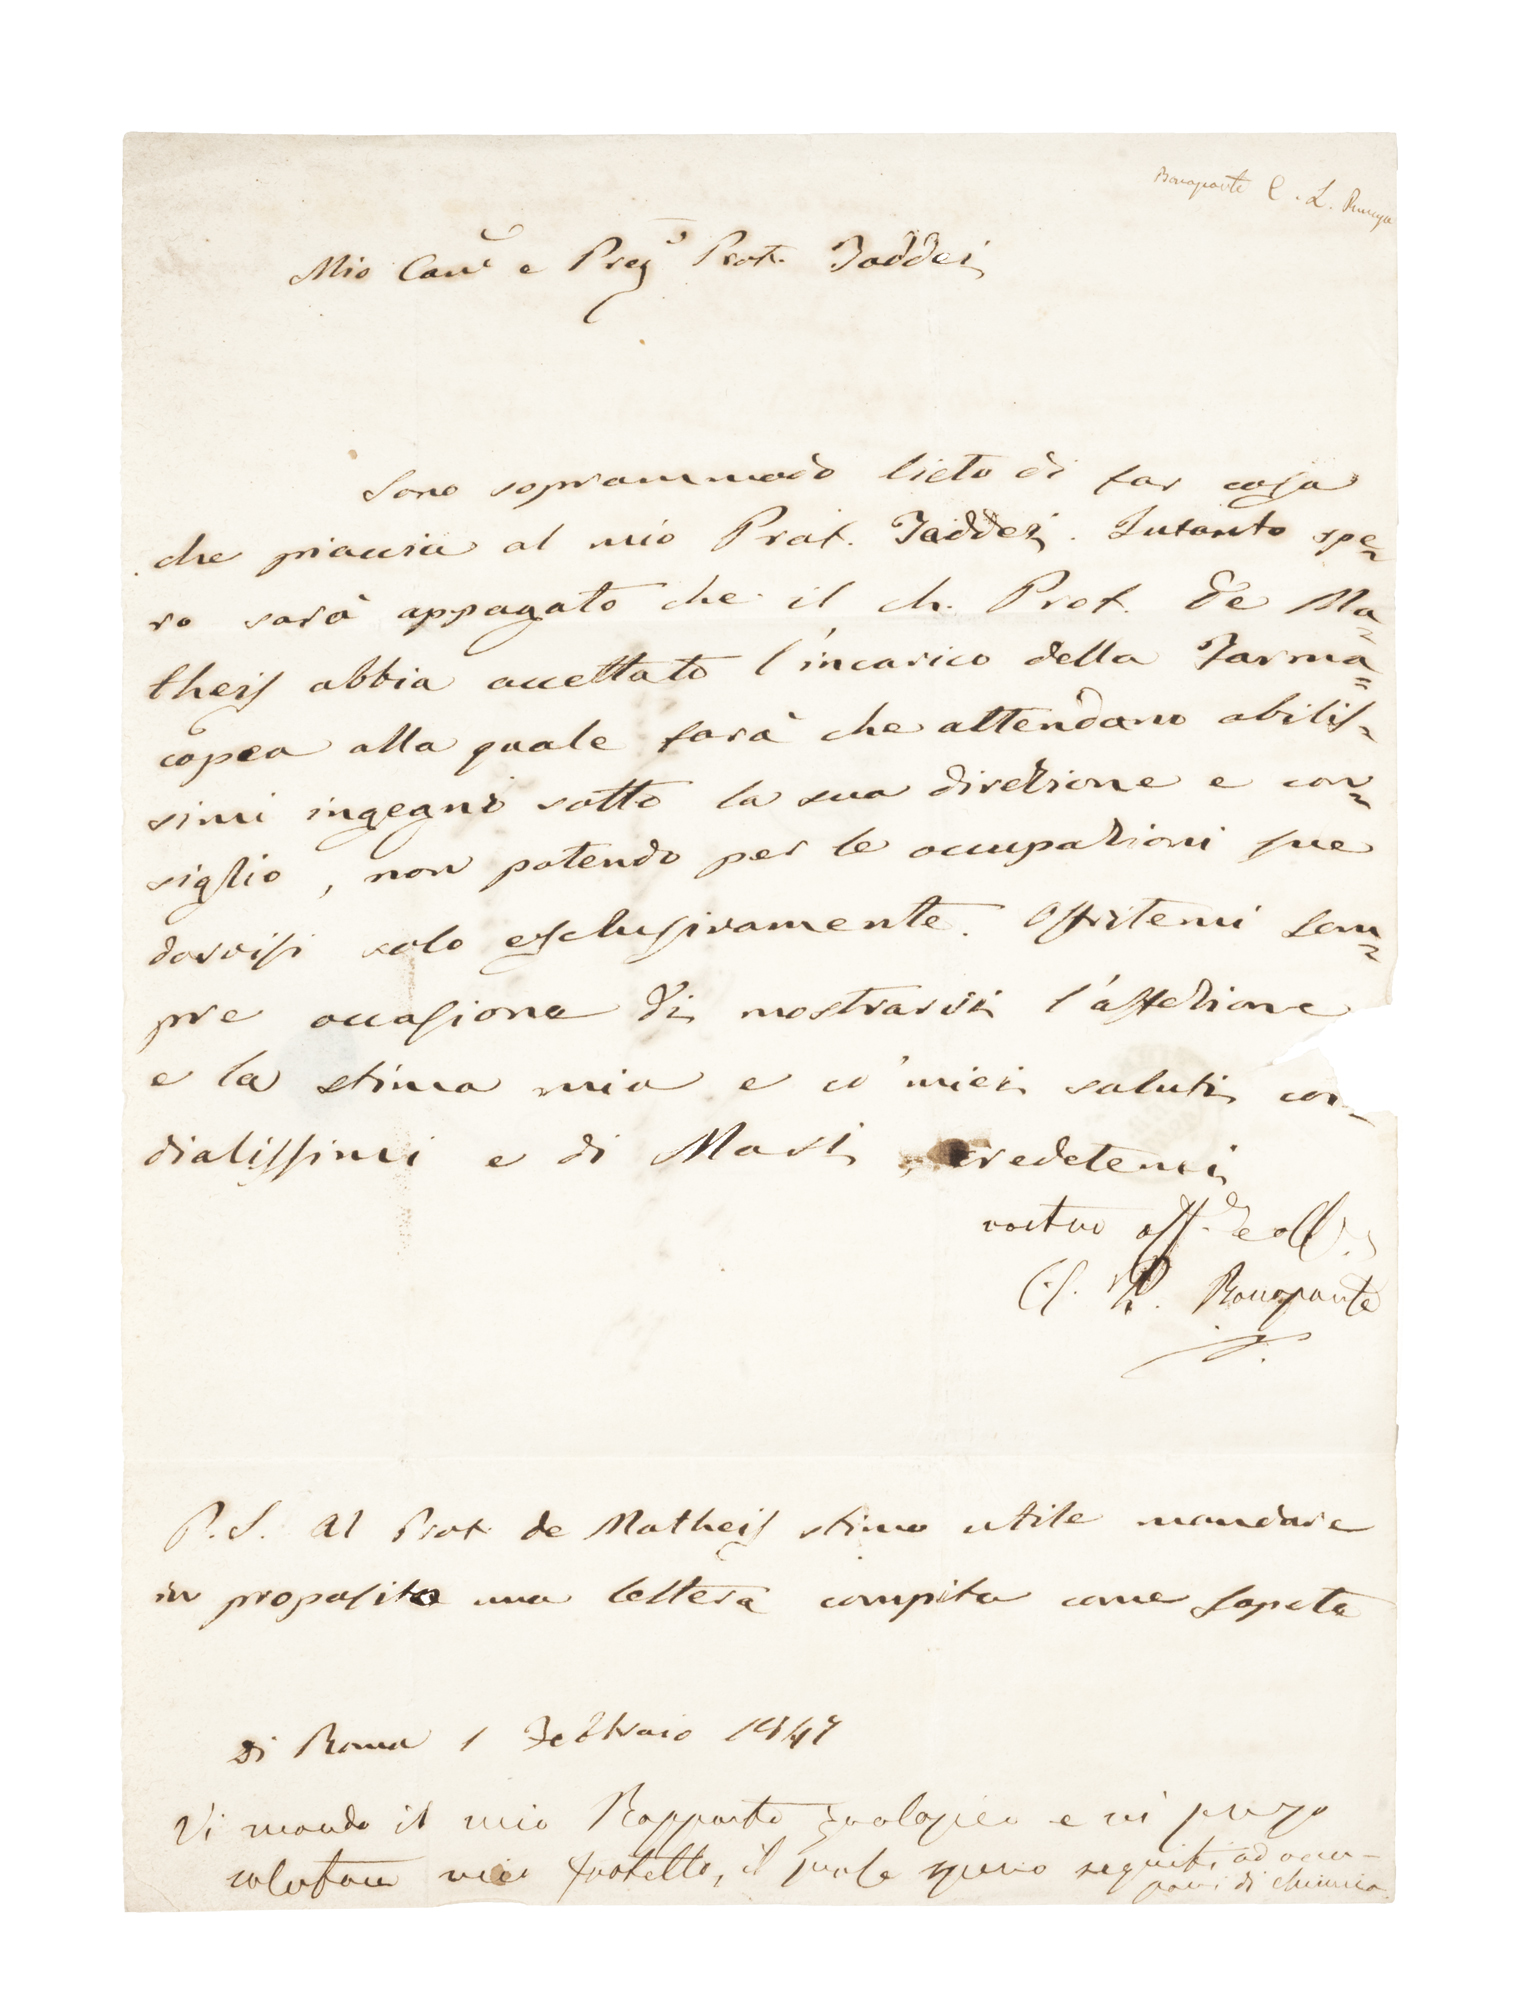 Bonaparte C. L.
Mio Car.e e Preg.o Prof. Taddei
Sono soprammodo lieto di far cosa
che piaccia al mio Prof. Taddei. Intanto spe=
ro sarà appagato che il ch. Prof. De Ma=
theis abbia accettato l'incarico della Farma=
copea alla quale farà che attendano abilis=
simi ingegni sotto la sua direzione e con=
siglio, non potendo per le occupazioni sue
darvisi solo esclusivamente. Offritemi sem=
pre occasione di mostrarvi l'affezione
e la stima mia e co' miei saluti cor=
dialissimi e di Masi, credetemi
vostro aff.
C. L. P. Bonaparte
P.S. Al Prof. de Matheis stimo utile mandare
in proposito una lettera compita come sapete
Di Roma 1 Febbraio 1847
Vi mando il mio Rapporto zoologico e vi prego
salutare mio fratello, il quale spero seguiti ad occu-
parsi di chimica